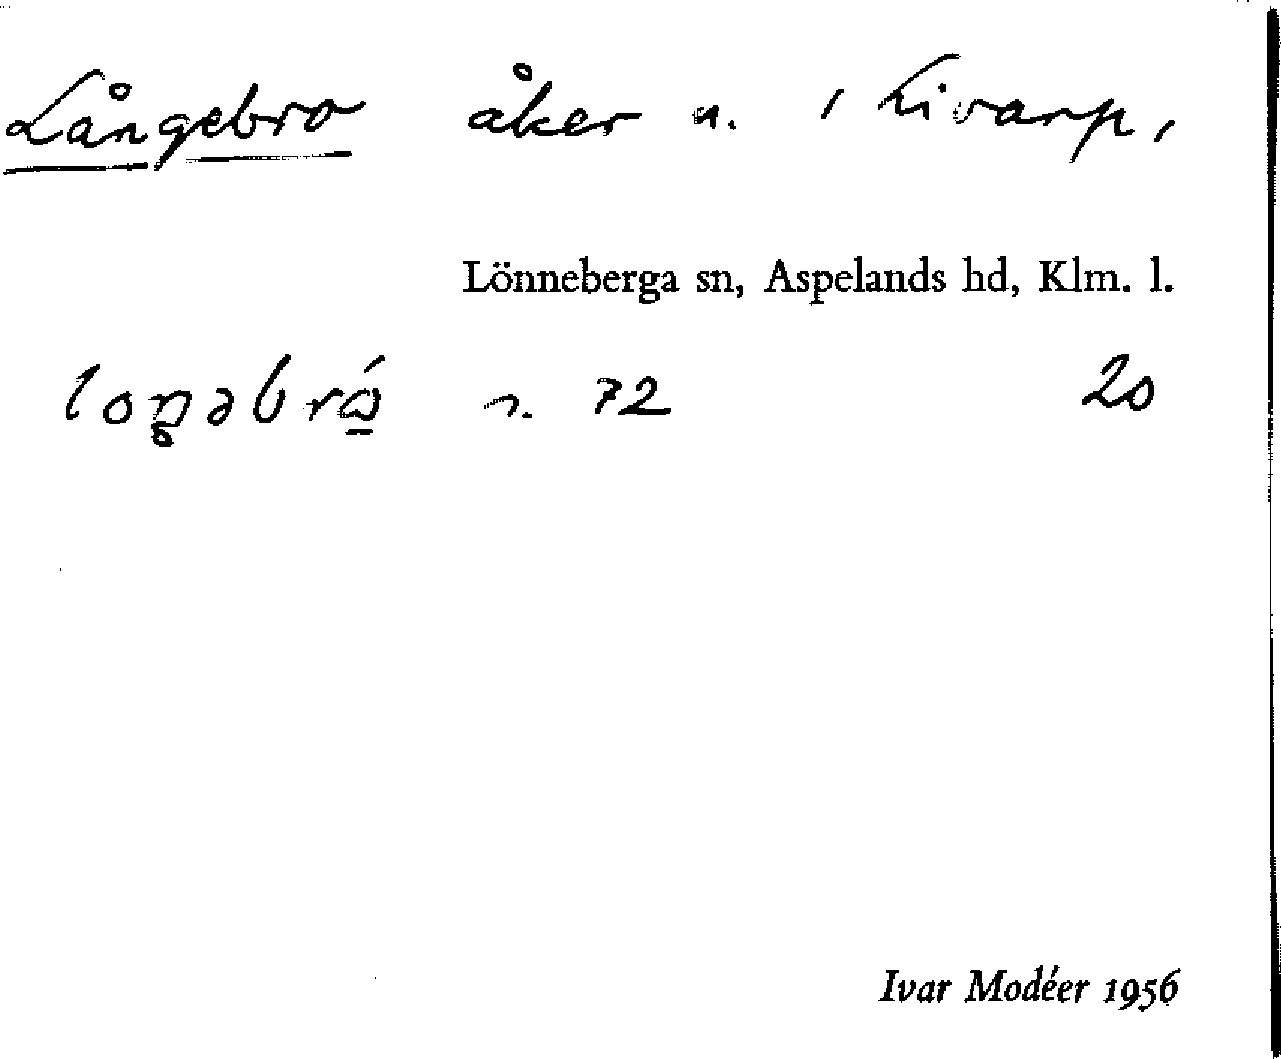 Långebro åker n. i Livarp,
Lönneberga sn, Aspelands hd, Klm. l.
loŋəbrɷ́ n. 72 20
Ivar Modéer 1956